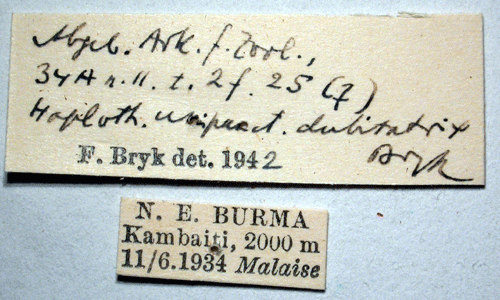 Abgeb. Ark. f. Zool.,
34A n. 11. t. 2 f. 25 (♀)
Haploth. unipunct. dubitatrix
Bryk
F. Bryk det. 1942
N. E. BURMA
Kambaiti, 2000 m
11/6.1934 Malaise